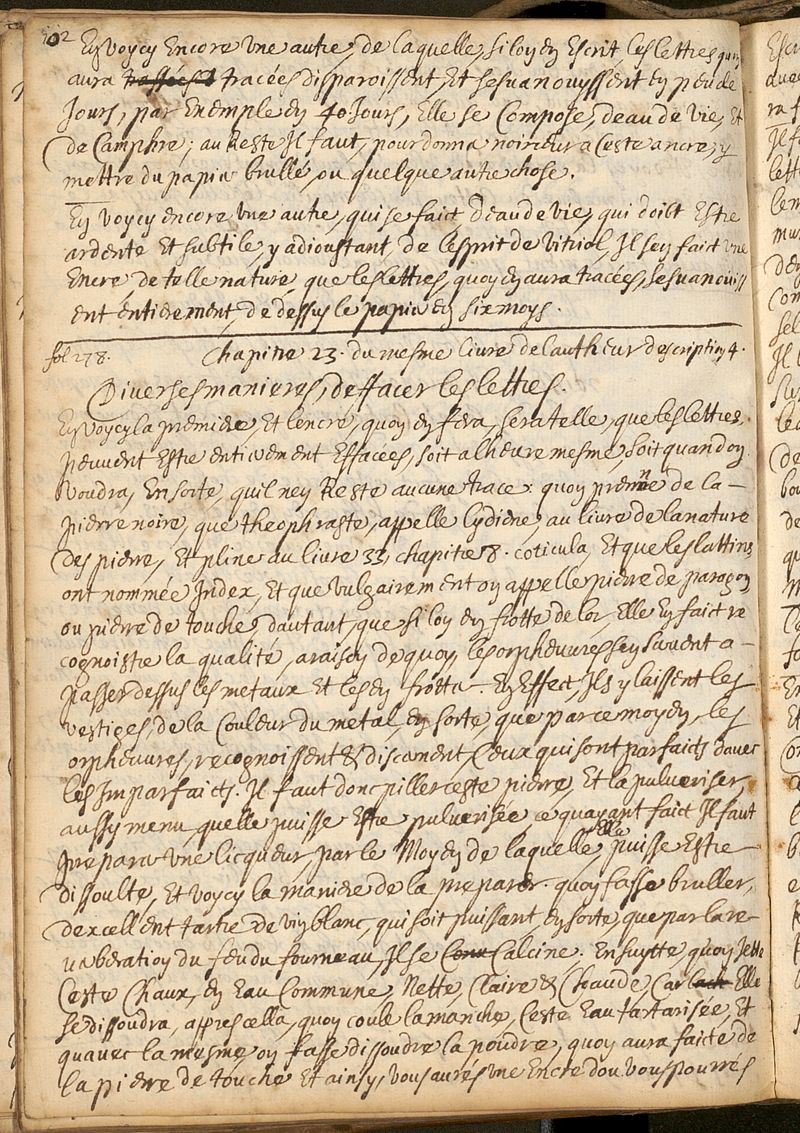 102
En voycy Encore une autre, de laquelle, si lon en Escrit, les lettres quon
aura tracées disparoissent, Et sesvanouyssent en peu de
Jours, par Exemple en 40 Jours, Elle se Compose, deau de vie, Et
de Camphre; au Reste Il faut, pour donner noirceur a Ceste ancre, y
mettre du papier brullé, ou quelque autre chose.
En voycy encore une autre, qui se faict deau de vie, qui doibt Estre
ardente Et subtile, y adioustant, de lesprit de vitriol, Il sen faict une
Encre de telle nature, que les lettres, quon en aura tracées, sesvanouiss
ent entierement, de dessus le papier en six moys.
fol 278. Chapitre 23. du mesme livre de lautheur description 4.
Diverses manieres, deffacer les lettres.
En voycy la premiere, Et lencre, quon en fera, sera telle, que les lettres,
peuvent Estre entierement Effacées, soit a lheure mesme, soit quand on
voudra, En sorte, quil ney Reste aucune trace: quon prenne de la –
pierre noire, que theophraste, appelle lydiene, au livre de la nature
des pierre, Et pline au livre 33, chapitre 8. coticula, Et que les lattins
ont nommée Index, Et que vulgairement on appelle pierre de paragon
ou pierre de touche, dautant, que si lon en frotte de lor, Elle En faict re
cognoistre la qualité, a raison de quoy, les orpheuvres sen servent a –
passer dessus les metaux Et les en frotter. En Effect, Ils y laissent les
vestiges, de la Couleur du metal, en sorte, que par ce moyen, les
orpheuvres, recognoissent & discernent, Ceux qui sont parfaicts davec
les Imparfaicts. Il faut donc piller ceste pierre, Et la pulveriser,
aussy menu, quelle puisse Estre pulverisée ce quayant faict Il faut
preparer une licqueur, par le Moyen de laquelle, Elle puisse Estre
dissoulte, Et voycy la maniere de la preparer. quon fasse bruller,
dexcellent tartre de vin blanc, qui soit puissant, en sorte, que par la re–
verberation du feu du fourneau, Il se Calcine. Ensuytte, quon Jette
Ceste Chaux, en Eau Commune Nette, Claire & Chaude Car Elle
se dissoudra, appres cella, quon coule la manche, Ceste Eau tartarisée, Et
quavec la mesme, on fasse dissoudre la poudre, quon aura faicte de
la pierre de touche Et ainsy, vous aurés une Encre dou vous pourrés